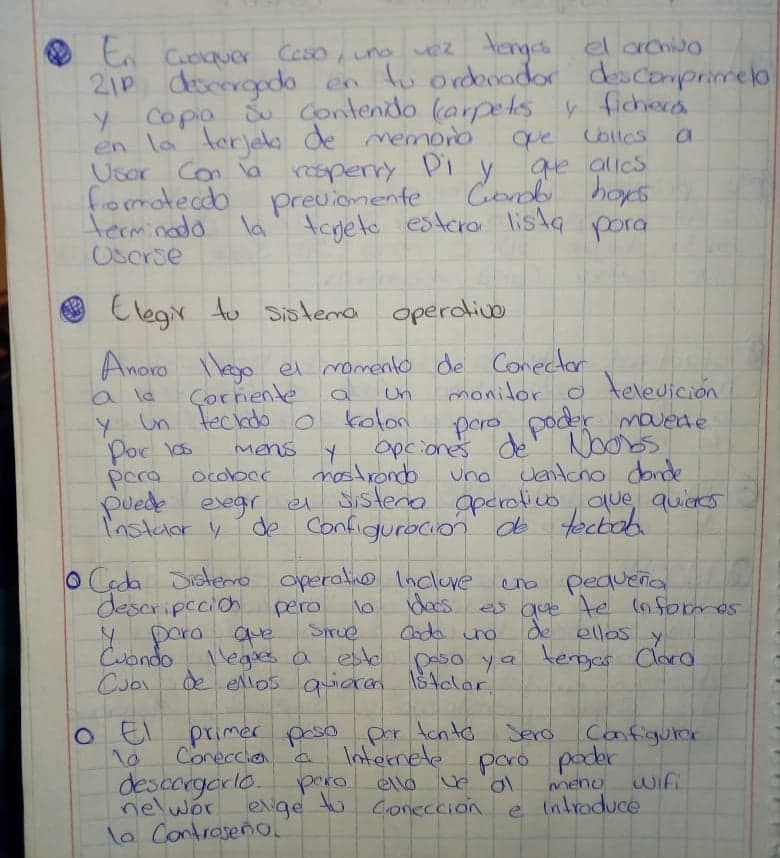 En cualquer caso, una vez tengas el archivo
ZIP descargado en tu ordenador descomprimelo
y copia su contenido Carpetas y ficheros
en la tarjeta de memoria que a
Usar con la rasperry Pi y que
formateado previamente Cuando hayas
terminado la tarjeta estara lista para
Userse
Elegir tu sistema operativo
Ahora llego el momento de Conector
a la Corriente a un monitor o televición
y Un teclado o raton para poder moverte
Por los menus y opciones de Noobs
para acabar mostrando una ventana donde
puede elegir el sistema operativo que quieras
Instalar y de Configuración de teclado.
Cada Sistema operativo Incluye una pequeña
descripccion pero lo ideas es que te informes
y para que sirve cada uno de ellos y
Cuando llegues a este paso ya tengas Claro
Cual de ellos quieran Istalar.
El primer paso por tanto sera Configurar
la Coneccion a Internete para poder
descargarlo. para ello ve al menu wifi
nelwor elige tu coneccion e introduce
la Contraseña.